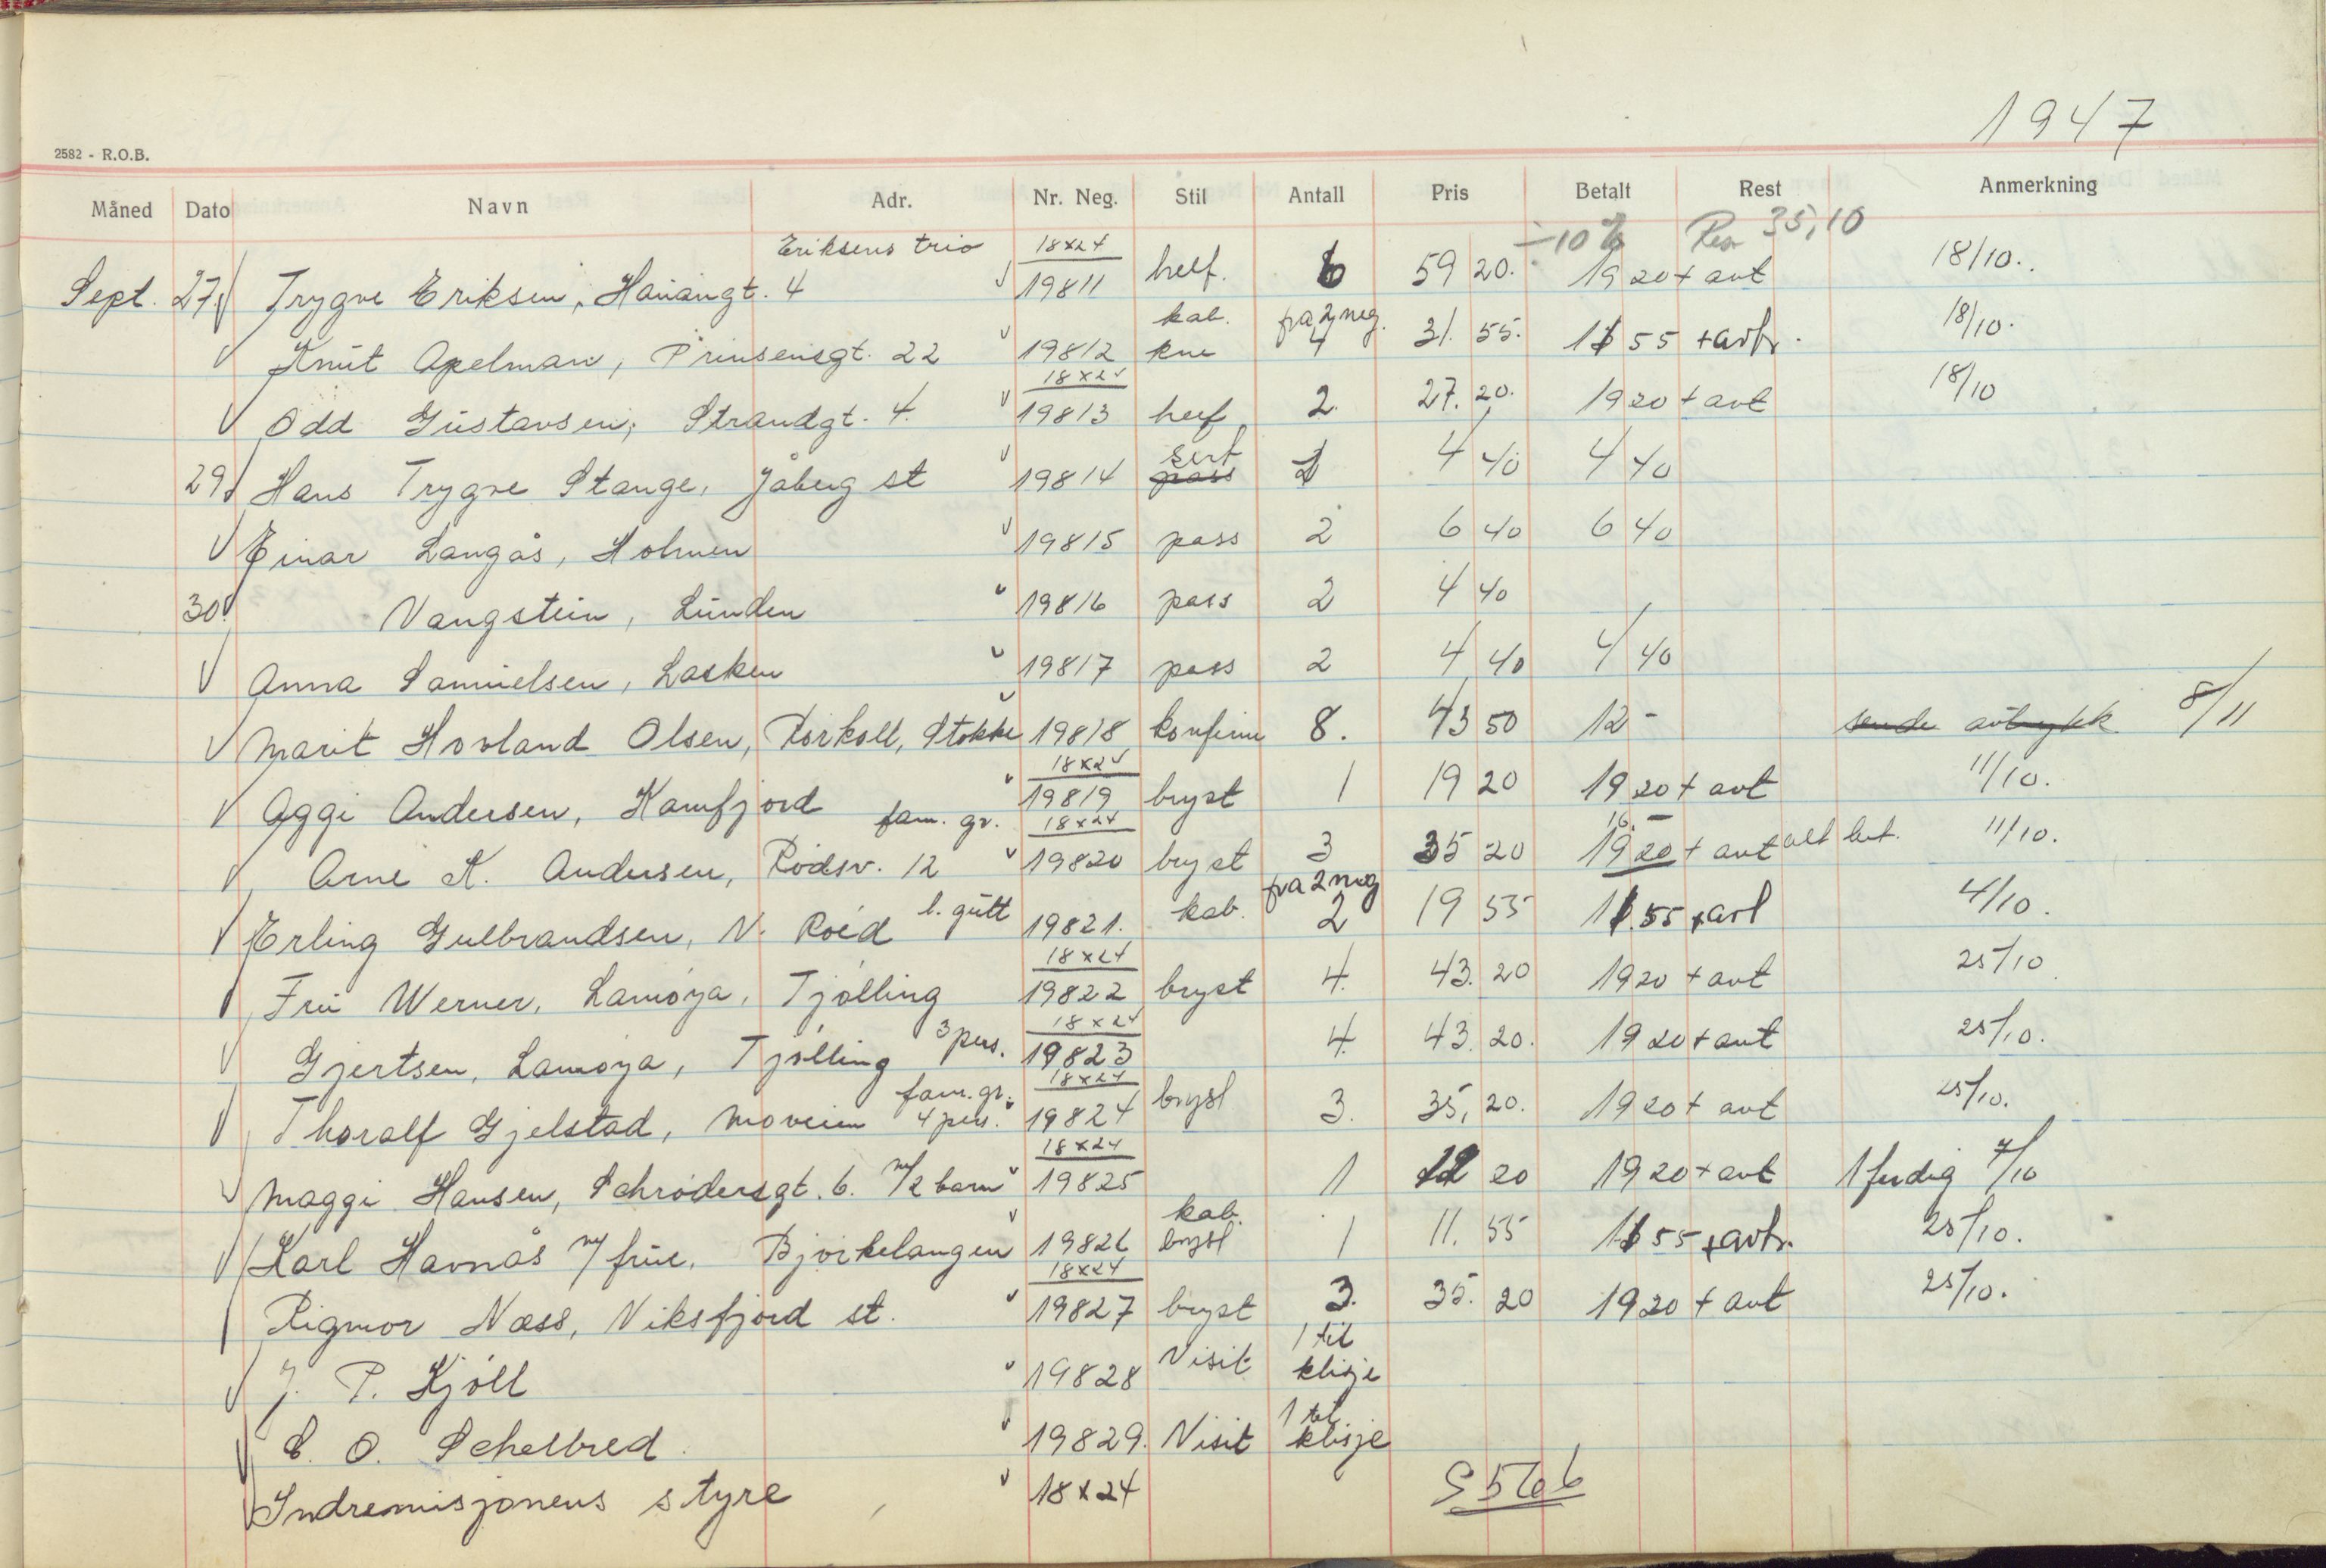 1947
2582 - R.O.B.
Måned Dato Navn Adr. Nr. Neg. Stil Antall Pris Betalt Rest Anmerkning
÷10% 35,10
Eriksens trio 18x24
Sept. 27. Trygve Eriksen, Havangt. 4 19811 helf. 6 59 20. 19 20 + avt 18/10.
kab. fra 2 neg.
Knut Apelman, Prinsensgt. 22 19812 kne 4 31. 55. 11 55 + avtr. 18/10.
18x24
Odd Gustavsen, Strandgt. 4. 19813 helf 2. 27. 20. 19 20 + avt 18/10
sert
29. Hans Trygve Stange, Jåberg st 19814 pass 2 4 40 4 40
Einar Langås, Holmen 19815 pass 2 6 40 6 40
30. Vangstein, Lunden 19816 pass 2 4 40
Anna Samuelsen, Lasken 19817 pass 2 4 40 4 40
Marit Hovland Olsen, Rörkoll, Stokke 19818 konfirm 8. 43 50 12 - sende avtrykk 8/11
18x24
Aggi Andersen, Kamfjord 19819 bryst 1 19 20 19 20 + avt 11/10.
fam. gr. 18x24 16. -
Arne K. Andersen, Rödsv. 12 19820 bryst 3 35 20 19 20 + avt alt bet. 11/10.
fra 2 neg
Erling Gulbrandsen, N. Roed l. gutt 19821. kab. 2 19 55 11.55 + avt 4/10.
18x24
Fru Werner, Lamöya, Tjölling 19822 bryst 4. 43. 20 19 20 + avt 25/10
18x24
Gjertsen, Lamöya, Tjölling 3 pers. 19823 4. 43. 20. 19 20 + avt 25/10.
fam. gr. 18x24
Thoralf Gjelstad, Moveien 4 pers. 19824 bryst 3. 35, 20. 19 20 + avt 25/10.
18x24
Maggi Hansen, Schrödersgt. 6. m/2 barn 19825 1 20 19 20 + avt 1 ferdig 7/10
kab.
Karl Havnås m/ frue, Bjørkelangen 19826 bryst 1 11. 55 11 55 + avtr. 25/10.
18x24
Rigmor Næss, Viksfjord st. 19827 bryst 3. 35. 20 19 20 + avt 25/10.
1 til
J. P. Kjöll 19828 Visit klisje
1 til
O. Schelbred. 19829. Visit klisje
Indremisjonens styre 18x24